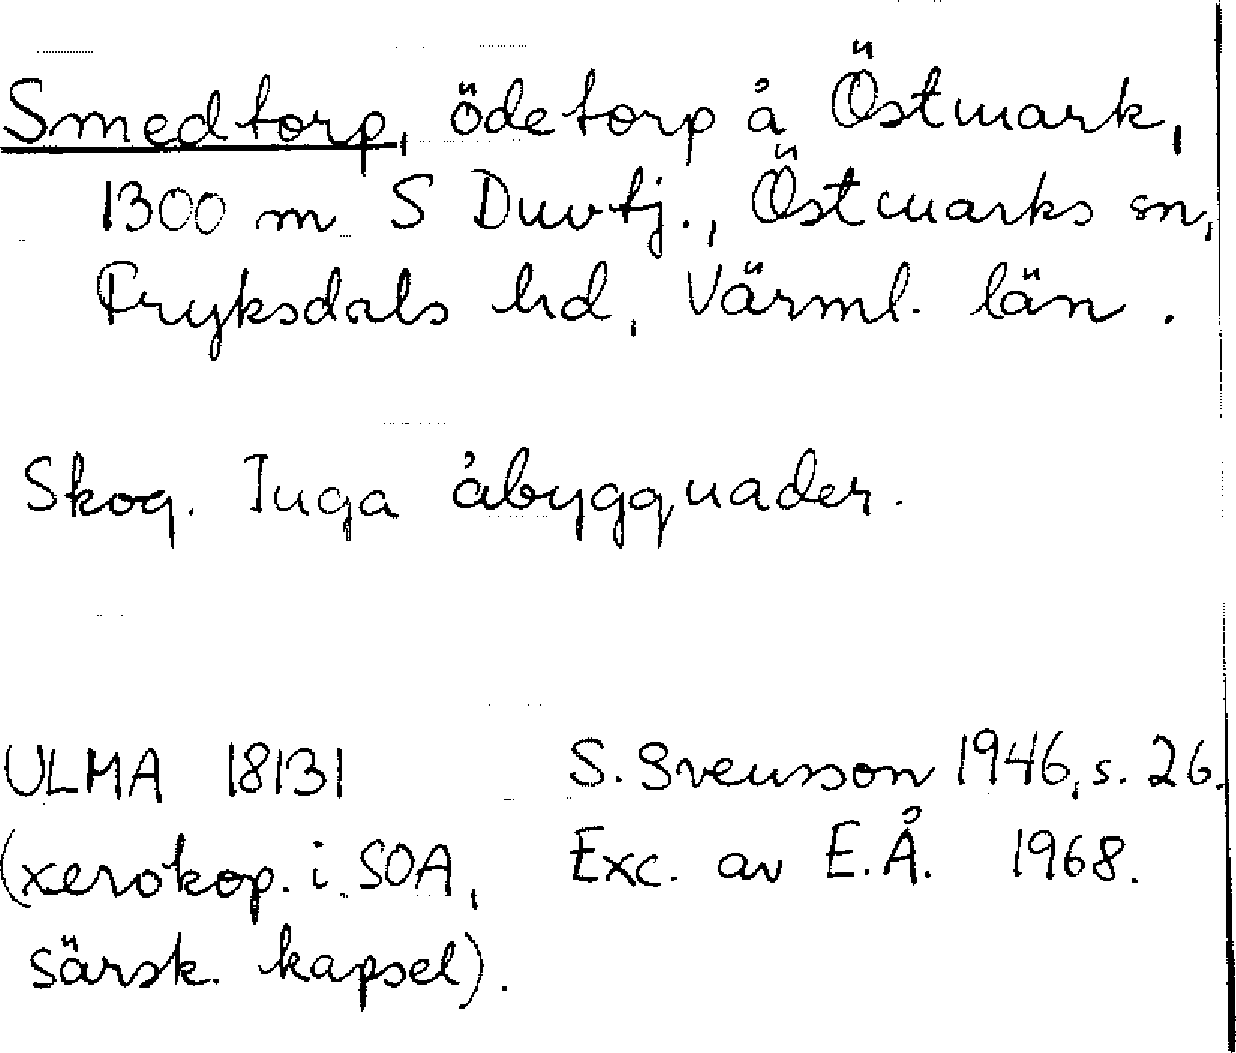 Smedtorp, ödetorp å Östmark,
1300 m S Duvtj., Östmarks sn,
Fryksdals hd, Värml. län.
Skog. Inga åbyggnader.
ULMA 18131
(xerokop. i SOA,
särsk. kapsel).
S. Svensson 1946, s. 26.
Exc. av E.Å. 1968.